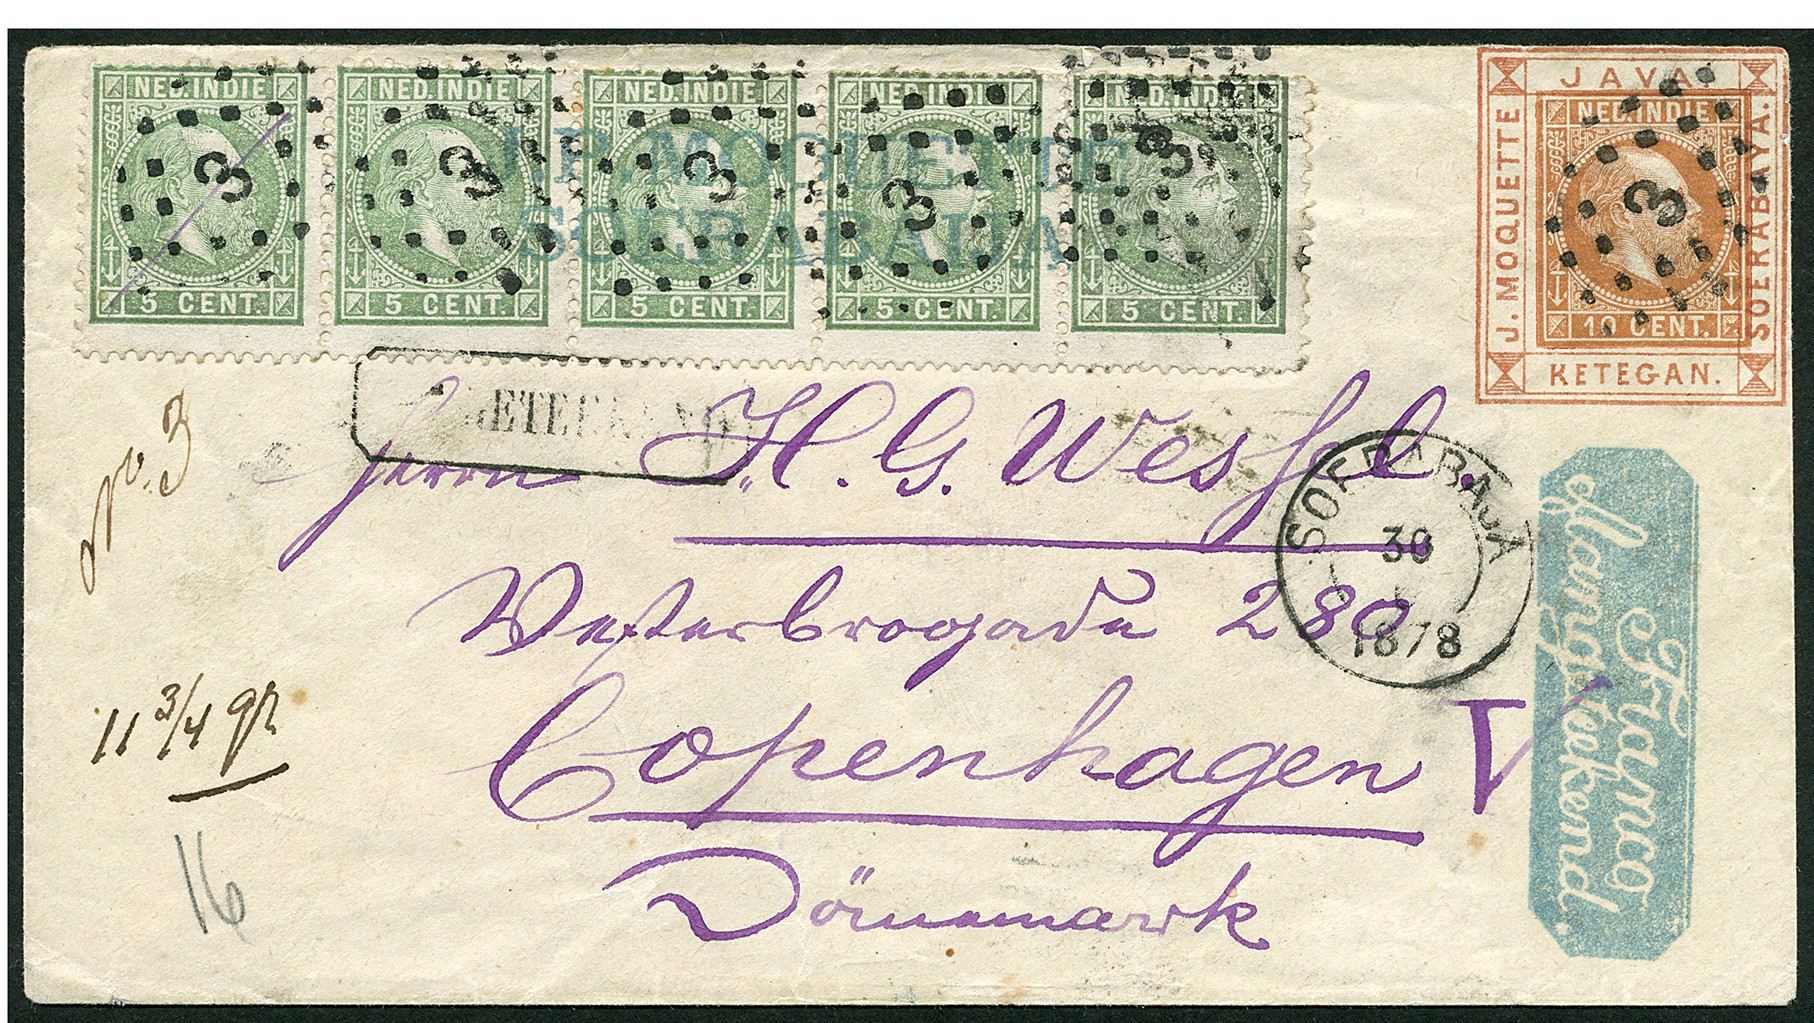 NED.INDIE NED.INDIE NED.INDIE NED.INDIE NED.INDIE
3 3 3 3 3
J.P. MOQUETTE
SOERABAIJA
5 CENT. 5 CENT. 5 CENT. 5 CENT. 5 CENT.
JAVA
J. MOQUETTE
NED.INDIE
3
10 CENT.
SOERABAVA.
KETEGAN.
No. 3
Herrn H. G. Wessel.
Westerbrogade 280
Copenhagen V
Dänemark
SOERABAJA
30
1878
Franco
Aangeteekend.
11 3/4 gr
16